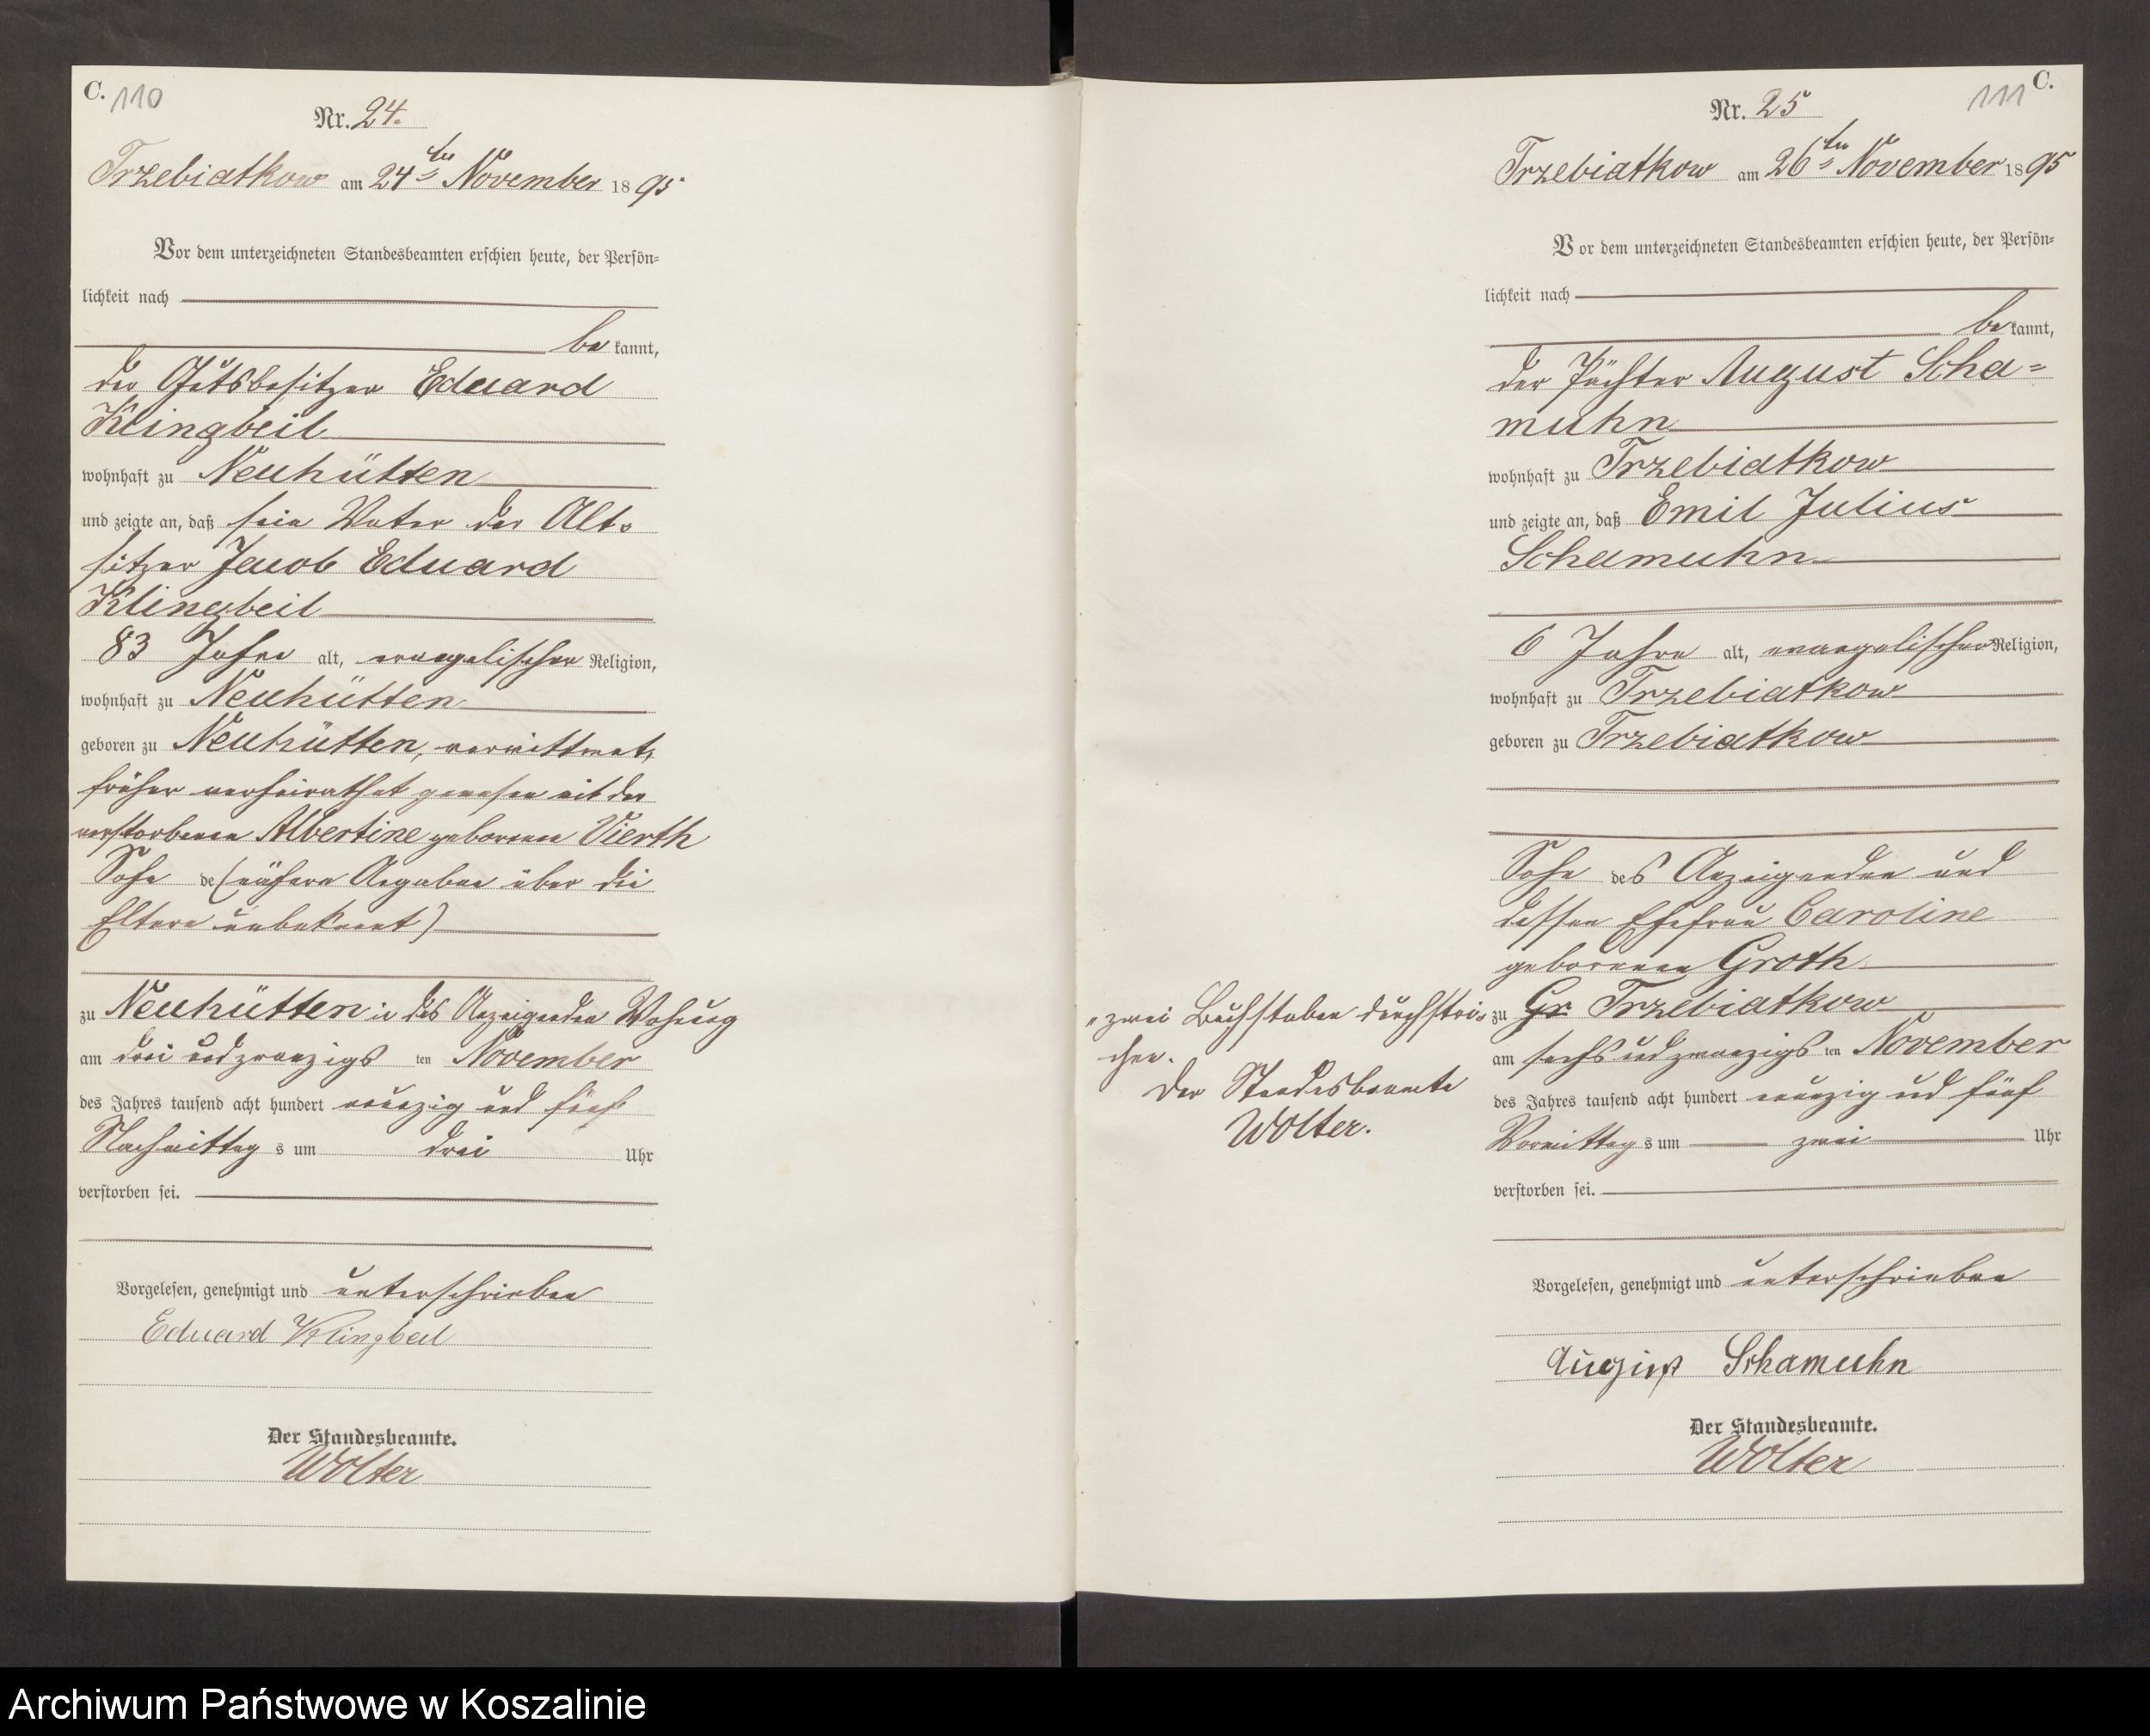 C. 110
Nr. 24.
Trzebiatkow am 24ten November 1895
Vor dem unterzeichneten Standesbeamten erschien heute, der Persön=
lichkeit nach
bekannt,
der Gutsbesitzer Eduard
Klingbeil
wohnhaft zu Neuhütten
und zeigte an, daß sein Vater der Alt=
sitzer Jacob Eduard
Klingbeil
83 Jahre alt, evangelischer Religion,
wohnhaft zu Neuhütten
geboren zu Neuhütten, verwittwet,
früher verheirathet gewesen mit der
verstorbenen Albertine geborenen Vierth
Sohn de (nähere Angaben über die
Eltern unbekannt)
zu Neuhütten in des Anzeigenden Wohnung
am drei und zwanzigsten November
des Jahres tausend acht hundert neunzig und fünf
Nachmittags um drei Uhr
verstorben sei.
Vorgelesen, genehmigt und unterschrieben
Eduard Klingbeil
Der Standesbeamte.
Wolter
111 C.
Nr. 25
Trzebiatkow am 26ten November 1895
Vor dem unterzeichneten Standesbeamten erschien heute, der Persön=
lichkeit nach
bekannt,
der Pächter August Scha=
muhn
wohnhaft zu Trzebiatkow
und zeigte an, daß Emil Julius
Schamuhn
6 Jahre alt, evangelischer Religion,
wohnhaft zu Trzebiatkow
geboren zu Trzebiatkow
Sohn des Anzeigenden und
dessen Ehefrau Caroline
geborenen Groth
zu Gr. Trzebiatkow
am sechs und zwanzigsten November
des Jahres tausend acht hundert neunzig und fünf
Vormittags um zwei Uhr
verstorben sei.
„zwei Buchstaben durchstri=
chen.
Der Standesbeamte
Wolter.
Vorgelesen, genehmigt und unterschrieben
August Schamuhn
Der Standesbeamte.
Wolter
Archiwum Państwowe w Koszalinie